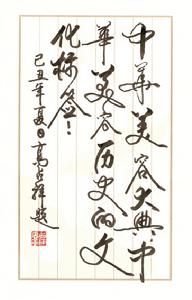 中华美容大典中
华美容历史的文
化标签！
己丑年夏日高占祥题